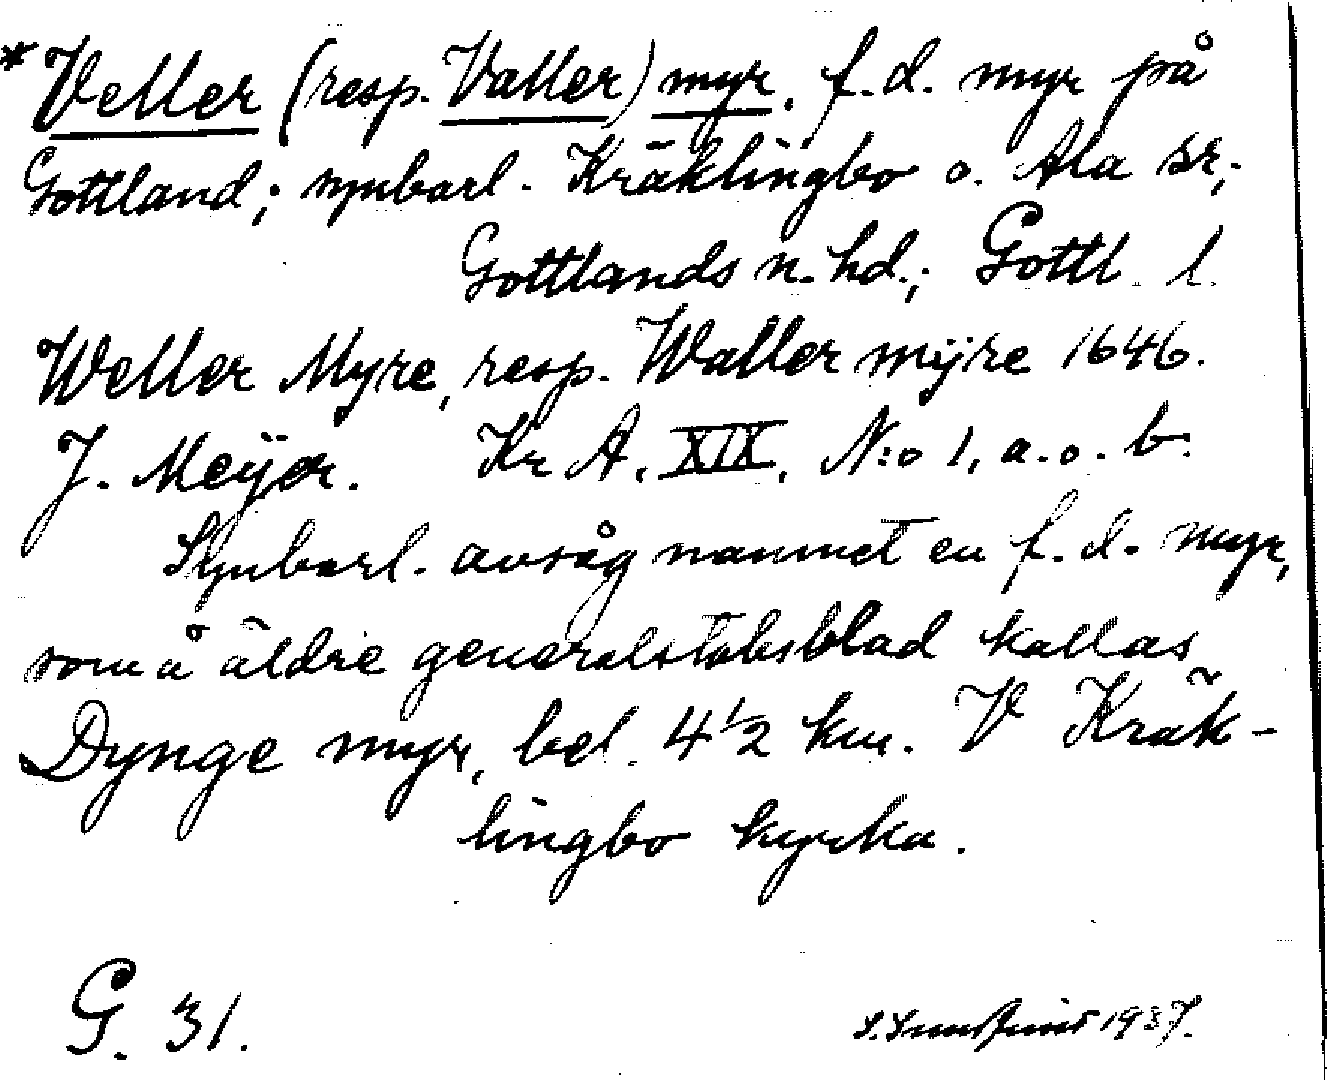 *Veller (resp. Valler) myr. f.d. myr på
Gottland; synbarl. Kräklingbo o. Ala sr,;
Gottlands n. hd.; Gottl. l.
Weller Myre, resp. Waller mÿre 1646.
J. Meÿer. Kr A. XIX, N:o 1, a. o. b.
Synbarl. avsåg namnet en f. d. myr,
som å äldre generalstabsblad kallas
Dynge myr, bel. 4 1/2 km. V Kräk-
lingbo kyrka.
G. 31.
1937.